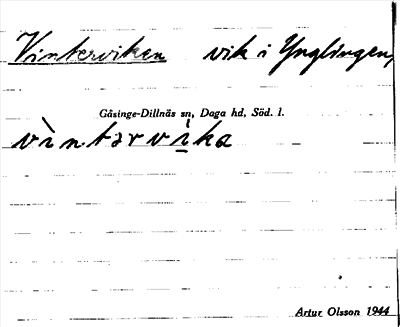 Vinterviken vik i Ynglingen,
Gåsinge-Dillnäs sn, Daga hd, Söd. l.
vìntərvi̱ka
Artur Olsson 1944